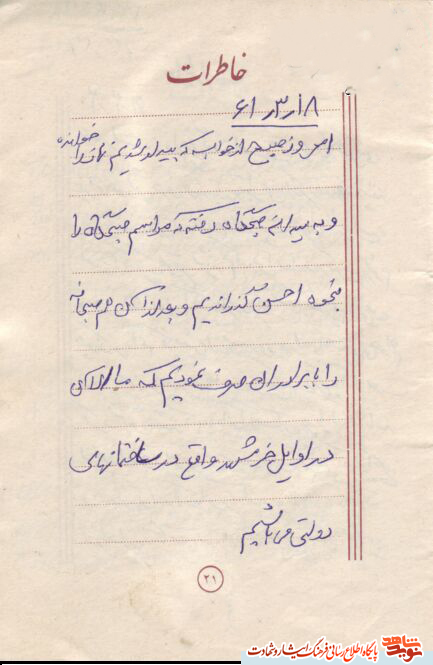 خاطرات
۶۱ر۳ر۱۸
امروز صبح از خواب که بیدار شدیم نماز را خوانده
و به میدان صبحگاه رفته که مراسم صبحگاه را
بنحوه احسن گذراندیم و بعد از آن هم صبحانه
را با برادران صرف نمودیم که ما الان
در اوایل خرمشهر واقع در ساختمانهای
دولتی می باشیم
۲۱
نوید شاهد پایگاه اطلاع رسانی فرهنگ ایثار و شهادت